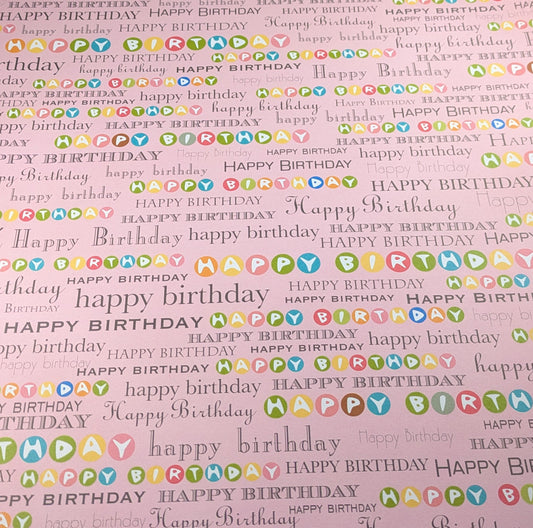 HAPPY BIRTHDAY Happy Birthday HAPPY BIRTHDAY
happy birthday HAPPY BIRTHDAY happy birthday
HAPPY BIRTHDAY HAPPY BIRTHDAY happy birthday
HAPPY BIRTHDAY HAPPY BIRTHDAY
HAPPY BIRTHDAY happy birthday HAPPY BIRTHDAY Happy Birthday HAPPY BIRTHDAY
HAPPY BIRTHDAY happy birthday HAPPY BIRTHDAY HAPPY BIRTHDAY
HAPPY BIRTHDAY HAPPY BIRTHDAY happy birthday Happy Birthday HAPPY BIRTHDAY
happy birthday HAPPY BIRTHDAY HAPPY BIRTHDAY
HAPPY BIRTHDAY HAPPY BIRTHDAY
HAPPY BIRTHDAY Happy Birthday HAPPY BIRTHDAY HAPPY BIRTHDAY
Happy Birthday happy birthday HAPPY BIRTHDAY HAPPY BIRTHDAY
HAPPY BIRTHDAY Happy Birthday
BIRTHDAY HAPPY BIRTHDAY
Happy Birthday happy birthday HAPPY BIRTHDAY
HAPPY BIRTHDAY HAPPY BIRTHDAY
HAPPY BIRTHDAY happy birthday HAPPY BIRTHDAY happy birthday HAPPY
HAPPY BIRTHDAY HAPPY BIRTHDAY HAPPY BIRTHDAY happy birthday
happy birthday HAPPY BIRTHDAY HAPPY BIRTHDAY happy birthday
happy birthday HAPPY BIRTHDAY HAPPY BIRTHDAY HAPPY BIRTHDAY
HAPPY BIRTHDAY HAPPY BIRTHDAY happy
BIRTHDAY happy birthday HAPPY BIRTHDAY
HAPPY BIRTHDAY Happy Birthday HAPPY BIRTHDAY
happy birthday Happy Birthday HAPPY BIRTHDAY
HAPPY BIRTHDAY HAPPY BIRTHDAY HAPPY BIRTHDAY
HAPPY BIRTHDAY HAPPY BIRTHDAY HAPPY BIRTHDAY
happy birthday HAPPY BIRTHDAY Happy Birthday